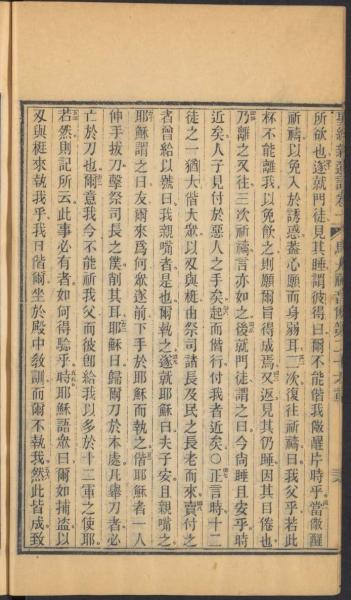 所欲也遂就門徒見其睡謂彼得曰爾不能偕我儆醒片時乎當儆醒
祈禱以免入於誘惑蓋心願而身弱耳二次復往祈禱曰我父乎若此
杯不能離我以免飲之則願爾旨得成焉又返見其仍睡因其目倦也
乃離之又往三次祈禱言亦如之後就門徒謂之曰今尚睡且安乎時
近矣人子見付於惡人之手矣起而偕行付我者近矣○正言時十二
徒之一猶大偕大眾以刃與梃由祭司諸長及民之長老而來賣付之
者曾給以號曰我親嘴者是也爾執之遂就耶穌曰夫子安且親嘴之
耶穌謂之曰友爾來爲何眾遂前下手於耶穌而執之偕耶穌者一人
伸手拔刀擊祭司長之僕削其耳耶穌曰歸爾刀於本處凡舉刀者必
亡於刀也爾意我今不能祈我父而彼卽給我以多於十二軍之使耶
若然則記所云此事必有者如何得驗乎時耶穌語眾曰爾如捕盜以
刃與梃來執我乎我日偕爾坐於殿中教訓而爾不執我然此皆成致